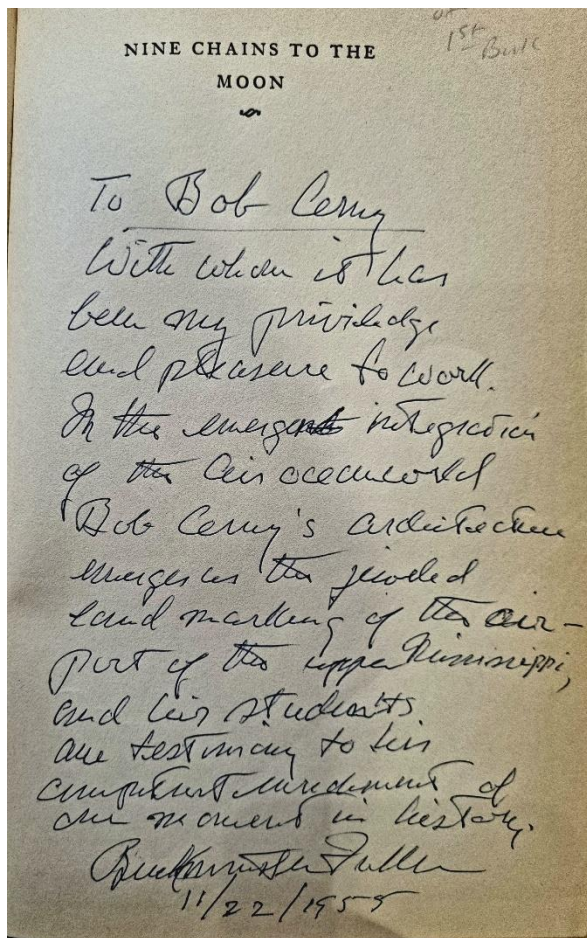 1st
NINE CHAINS TO THE
MOON
To Bob Cerny
With whom it has
been my priviledge
and pleasure to work.
In the emergent integration
of the air ocean world
Bob Cerny's architecture
emerges as the jeweled
land marking of the air-
port of the upper Mississippi,
and his students
are testimony to his
competent of
our moment in history.
Buckminster Fuller
11/22/1955